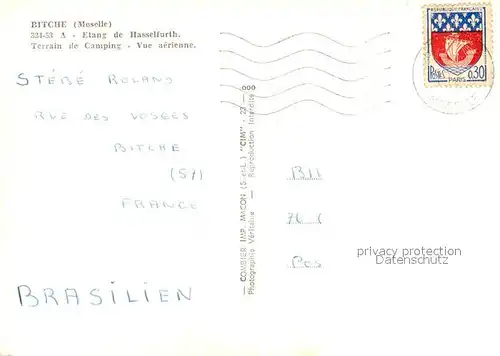 BITCHE (Moselle)
324-53 A - Etang de Hasselfurth.
Terrain de Camping - Vue aérienne.
REPUBLIQUE FRANÇAISE
PARIS
0,30
STÉBÉ ROLAND
RUE DES VOSGES
BITCHE
(57)
FRANCE
BRASILIEN
— COMBIER IMP. MACON (S.-et-L.) "CIM" - 23 -
Photographie Véritable - Reproduction Interdite
privacy protection
Datenschutz